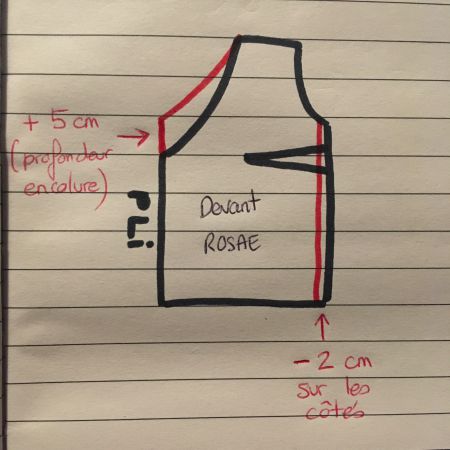 + 5 cm
(profondeur
encolure)
PLi
Devant
ROSAE
- 2 cm
sur les
côtés